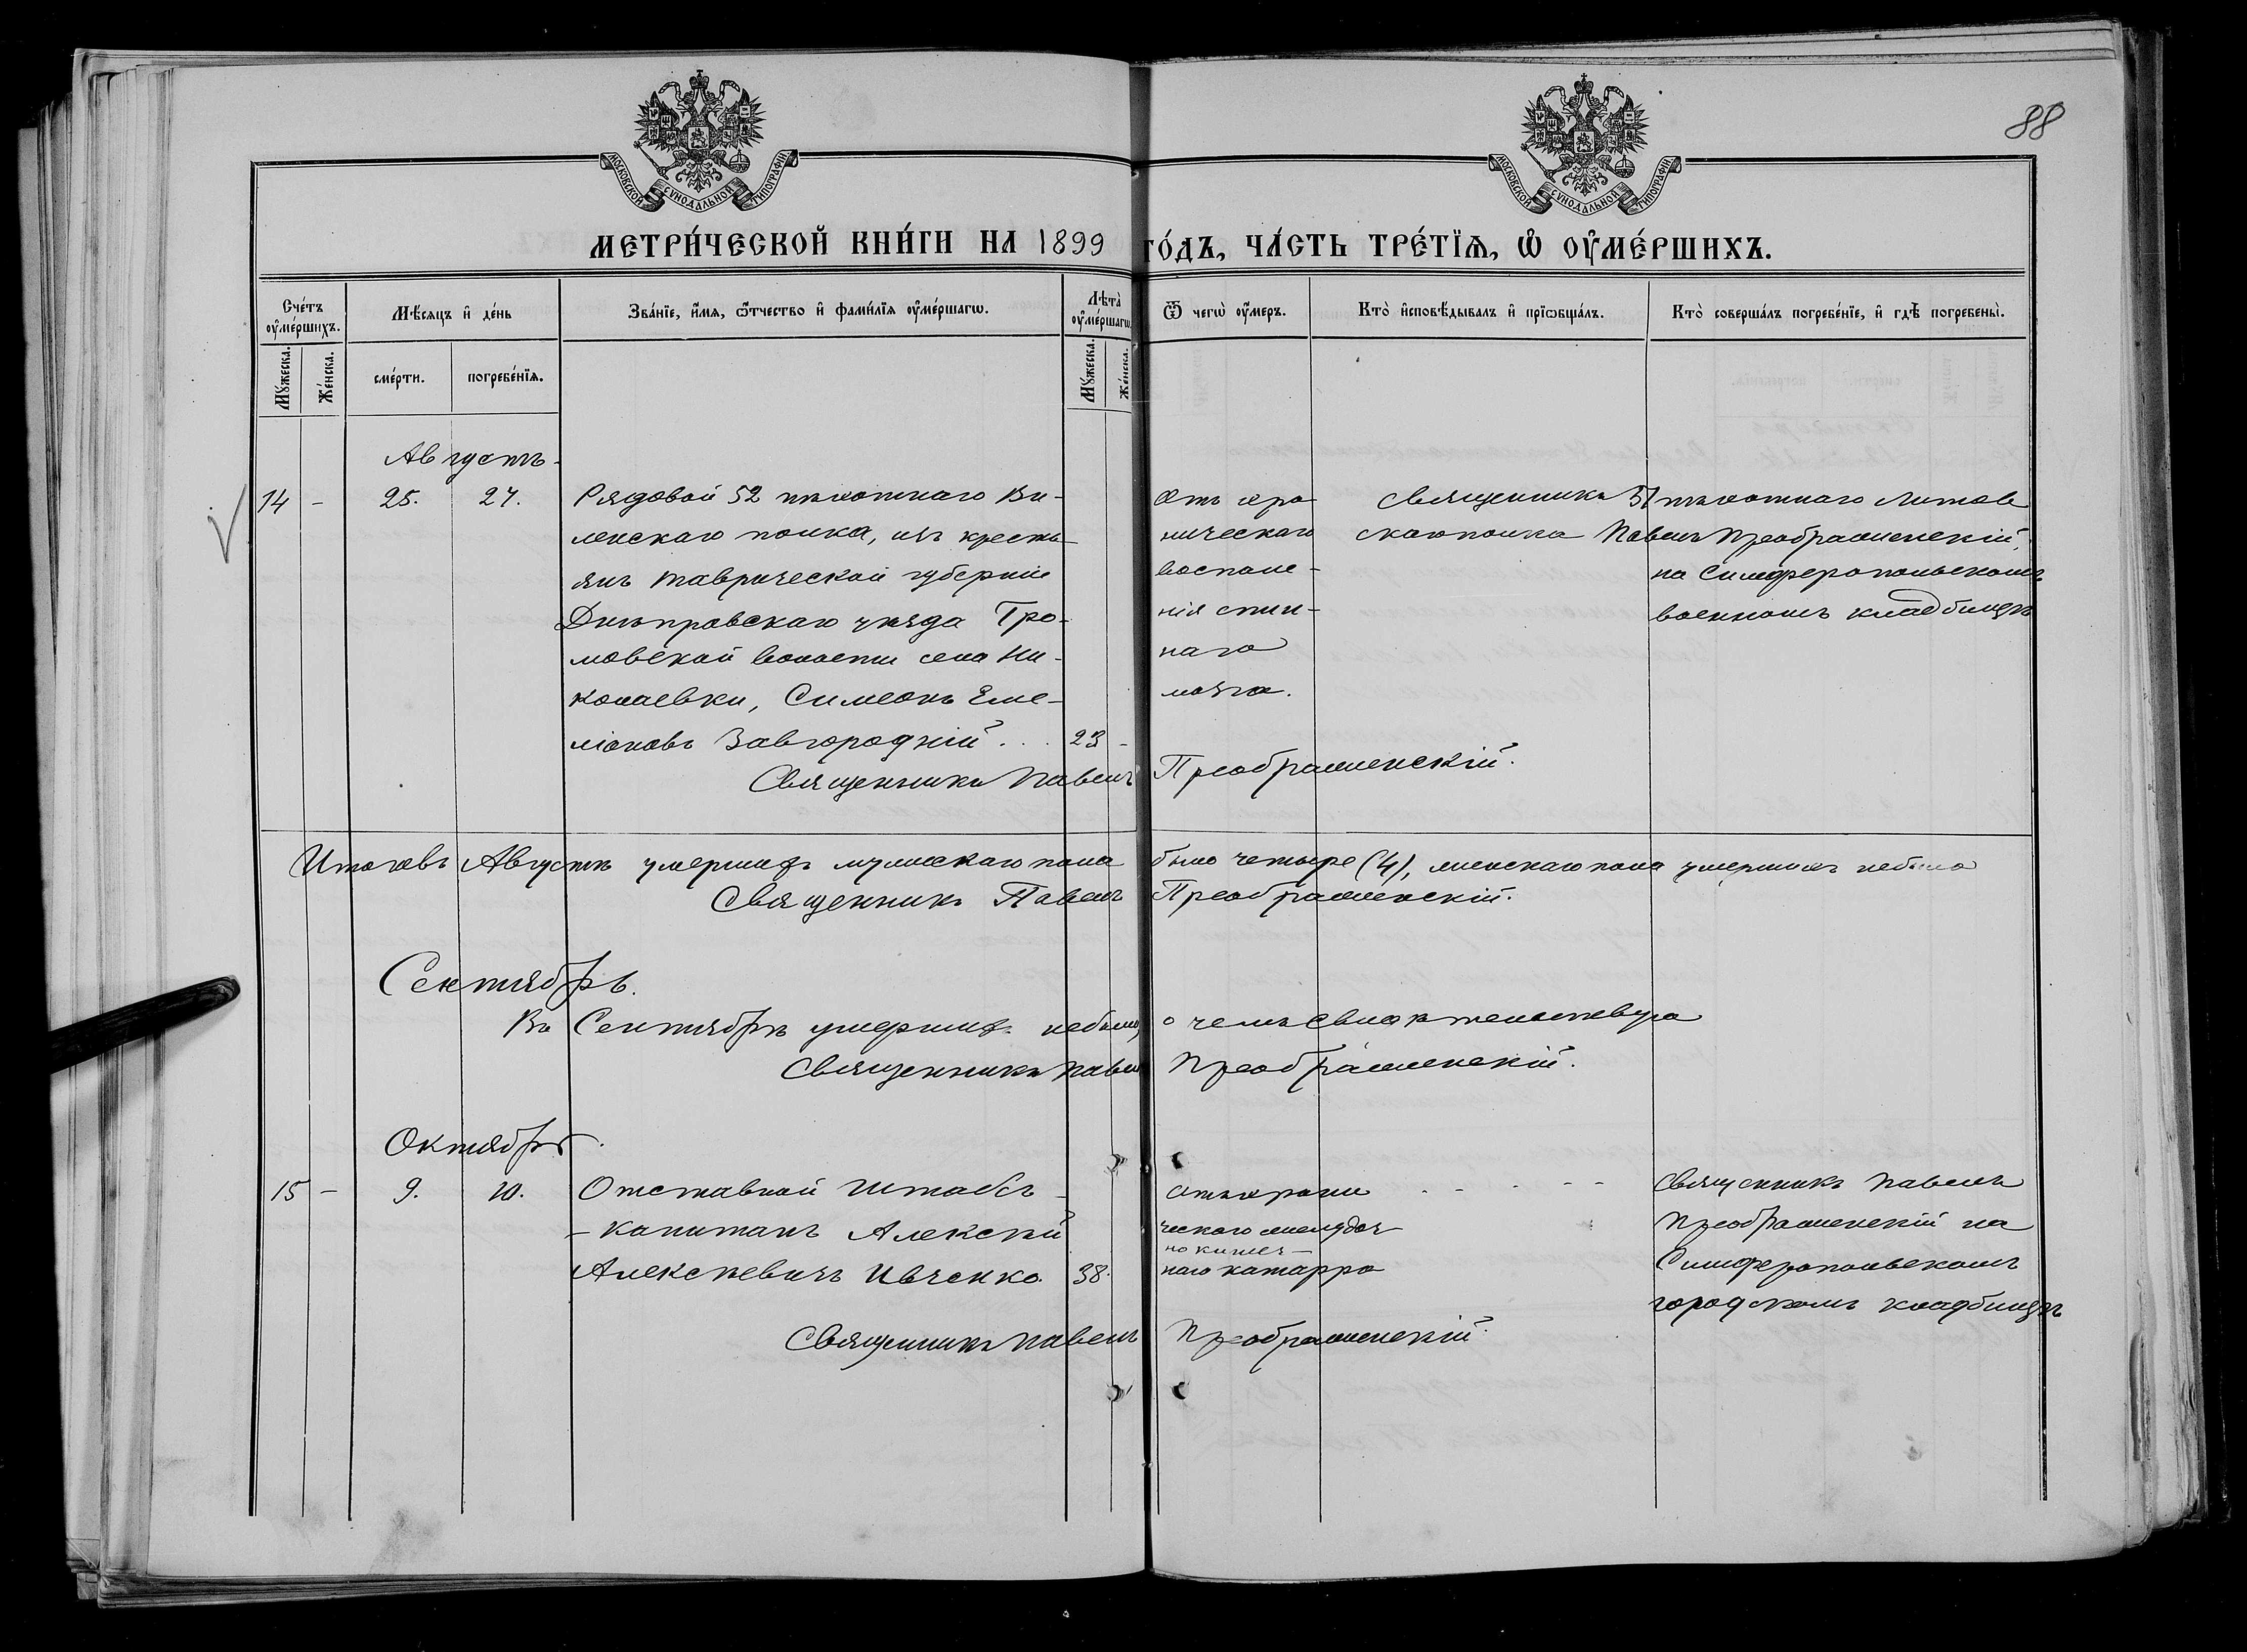 88
МОСКОВСКОЙ СѴНОДАЛЬНОЙ ТИПОГРАФІИ
МОСКОВСКОЙ СѴНОДАЛЬНОЙ ТИПОГРАФІИ
МЕТРИ́ЧЕСКОЙ КНИ́ГИ НА 1899 ГО́ДЪ, ЧА́СТЬ ТРЕ́ТЇѦ, Ѡ҆ ОУ҆МЕ́РШИХЪ.
Сче́тъ оу҆ме́ршихъ.
Мꙋ́жеска.
Же́нска.
Мѣ́сѧцъ и҆ де́нь
сме́рти.
погребе́нїѧ.
Зва́нїе, и҆́мѧ, ѻ҆́тчество и҆ фами́лїѧ оу҆ме́ршагѡ.
Лѣта̀ оу҆ме́ршагѡ.
Мꙋ́жеска.
Же́нска.
Ѿ чегѡ̀ оу҆́меръ.
Кто̀ и҆сповѣ́дывалъ и҆ прїѡбща́лъ.
Кто̀ соверша́лъ погребе́нїе, и҆ гдѣ̀ погребены̀.
Августъ.
14 - 25. 27.
Рядовой 52 пѣхотнаго Ви-
ленскаго полка, изъ кресть-
янъ Таврической губерніи
Днѣпровскаго уѣзда Гро-
мовской волости села Ни-
колаевки, Симеонъ Еме-
ліановъ Завгородній . . . 23 -
Отъ хро-
ническаго
воспале-
нія спин-
наго
мозга.
Священникъ 51 пѣхотнаго Литов
скаго полка Павелъ Преображенскій,
на Симферопольскомъ
военномъ кладбищѣ
Священникъ Павелъ Преображенскій.
Итого въ Августѣ умершихъ мужескаго пола было четыре (4), женскаго пола умершихъ небыло
Священникъ Павелъ Преображенскій.
Сентябрь.
Въ Сентябрѣ умершихъ небыло, о чемъ свидѣтельствую
Священникъ Павелъ Преображенскій.
Октябрь.
15 - 9. 10.
Отставной Штабсъ-
- капитанъ Алексѣй
Алексѣевичъ Ивченко. 38.
Отъ хрони
ческаго желудоч
но кишеч-
наго катарра
Священникъ Павелъ
Преображенскій на
Симферопольскомъ
городскомъ кладбищѣ
Священникъ Павелъ Преображенскій.